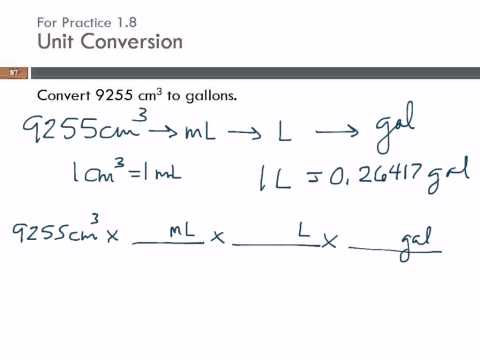 For Practice 1.8
Unit Conversion
87
Convert 9255 cm³ to gallons.
9255cm³ → mL → L → gal
1cm³ = 1mL 1L = 0.26417gal
9255cm³ x ___mL x ___L x ___gal